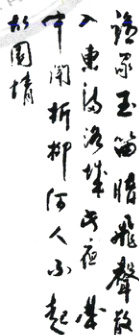 誰家玉笛暗飛聲散
入東滿洛城此夜曲
中聞折柳何人不起
故園情